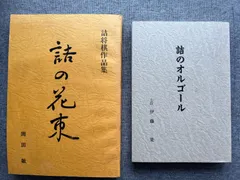 詰将棋作品集
詰の花束
岡田敏
詰のオルゴール
伊藤